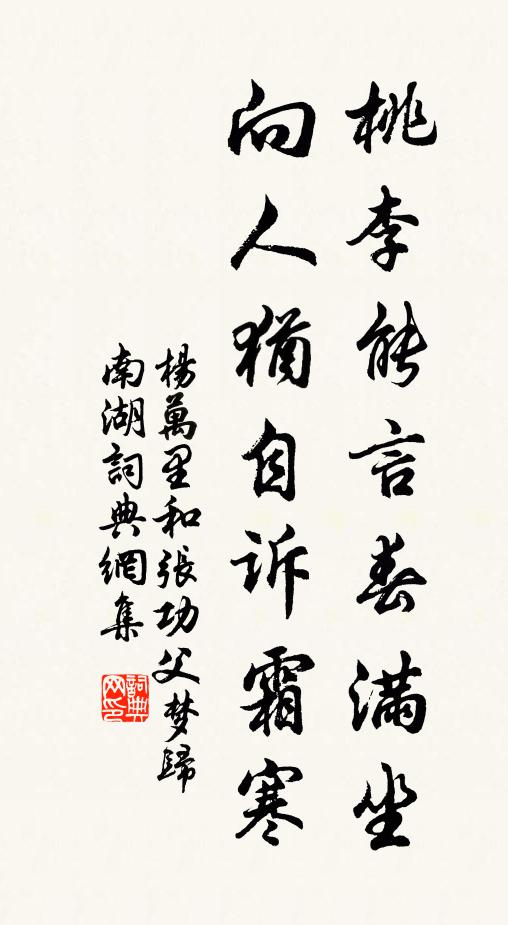 桃李能言春滿坐
向人猶自訴霜寒
楊萬里和張功父梦歸
南湖詞典網集
詞典
网印